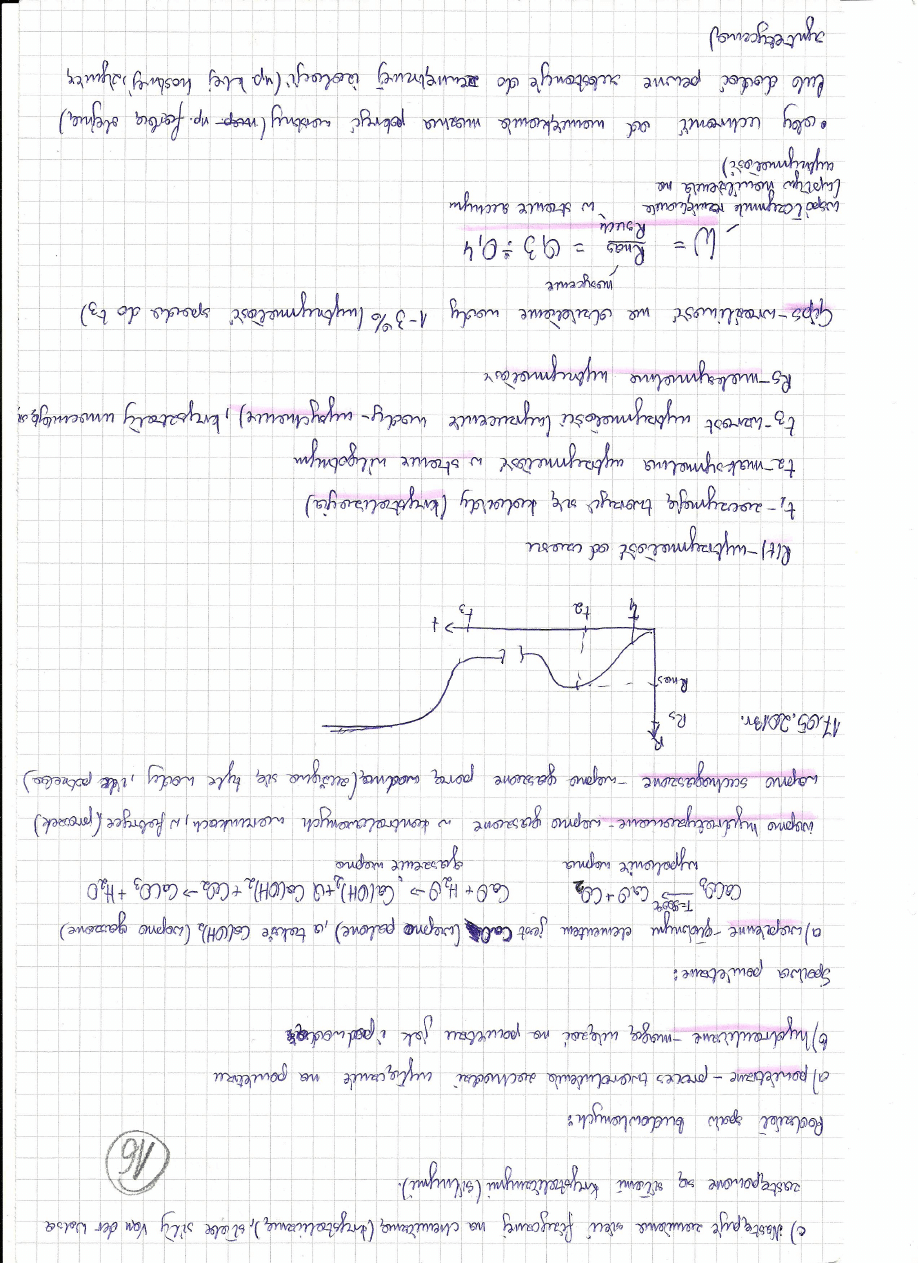 c) Następuje zamiana sieci fizycznej na chemiczną (krystaliczną), słabe siły Van der Walsa
zastępowane są siłami krystalicznymi (silnymi).
16
Podział spoiw budowlanych:
a) powietrzne - proces twardnienia zachodzi wyłącznie na powietrzu
b) hydrauliczne - mogą wiązać na powietrzu jak i pod wodą
Spoiwa powietrzne:
a) wapienne - głównym elementem jest CaO (wapno palone), a także Ca(OH)₂ (wapno gaszone)
CaCO₃ →T=900°C CaO + CO₂ CaO + H₂O → Ca(OH)₂ + Q Ca(OH)₂ + CO₂ → CaCO₃ + H₂O
wypalanie wapna gaszenie wapna
wapno hydratyzowane - wapno gaszone w kontrolowanych warunkach, w fabryce (proszek)
wapno suchogaszone - wapno gaszone parą wodną (zużywa się tyle wody, ile potrzeba)
17.05.2013r.
R
Rs
Rnas
t₁ t₂ t₃ t
R(t) - wytrzymałość od czasu
t₁ - zaczynają tworzyć się koloidy (krystalizacja)
t₂ - maksymalna wytrzymałość w stanie wilgotnym
t₃ - wzrost wytrzymałości (wyrzucenie wody - wysychanie), kryształy umacniają się
Rs - maksymalna wytrzymałość
Gips - wrażliwość na działanie wody 1-3% (wytrzymałość spada do t₃)
nasycenie
W = Rnas / Rsuch = 0,3 ÷ 0,4
współczynnik rozmiękania w stanie suchym
(wpływ nawilżenia na
wytrzymałość)
• aby uchronić od namiękania można pokryć warstwy (np. farbą olejną)
lub dodać pewne substancje do zewnętrznej izolacji (np. klej kostny, żywicę
syntetyczną)